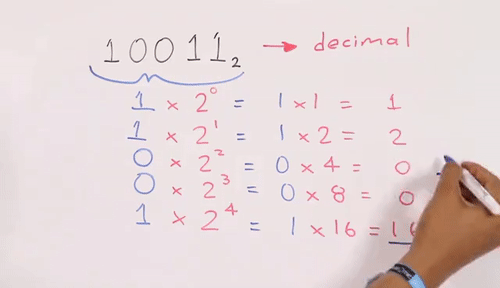 10011₂ → decimal
1 × 2⁰ = 1 × 1 = 1
1 × 2¹ = 1 × 2 = 2
0 × 2² = 0 × 4 = 0
0 × 2³ = 0 × 8 = 0
1 × 2⁴ = 1 × 16 = 16